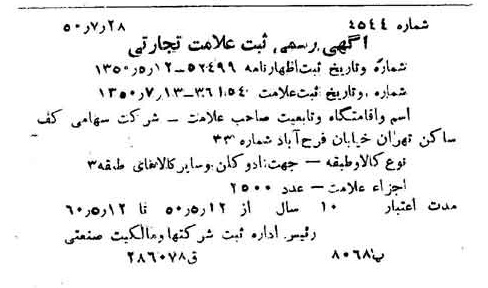 شماره ۴۵۴۴ ۵۰٫۷٫۲۸
آگهی رسمی ثبت علامت تجارتی
شماره وتاریخ ثبت اظهارنامه ۵۲۴۹۹-۱۳۵۰٫۵٫۱۲
شماره وتاریخ ثبت علامت ۳۶۱۵۴-۱۳۵۰٫۷٫۱۳
اسم واقامتگاه وتابعیت صاحب علامت – شرکت سهامی کف
ساکن تهران خیابان فرح آباد شماره ۳۳
نوع کالاوطبقه – جهت: ادوکلن وسایر کالاهای طبقه ۳
اجزاء علامت – عدد ۲۵۰۰
مدت اعتبار ۱۰ سال از ۵۰٫۵٫۱۲ تا ۶۰٫۵٫۱۲
رئیس اداره ثبت شرکتها ومالکیت صنعتی
پ ۸۰۶۸ ق ۲۸۶۰۷۸